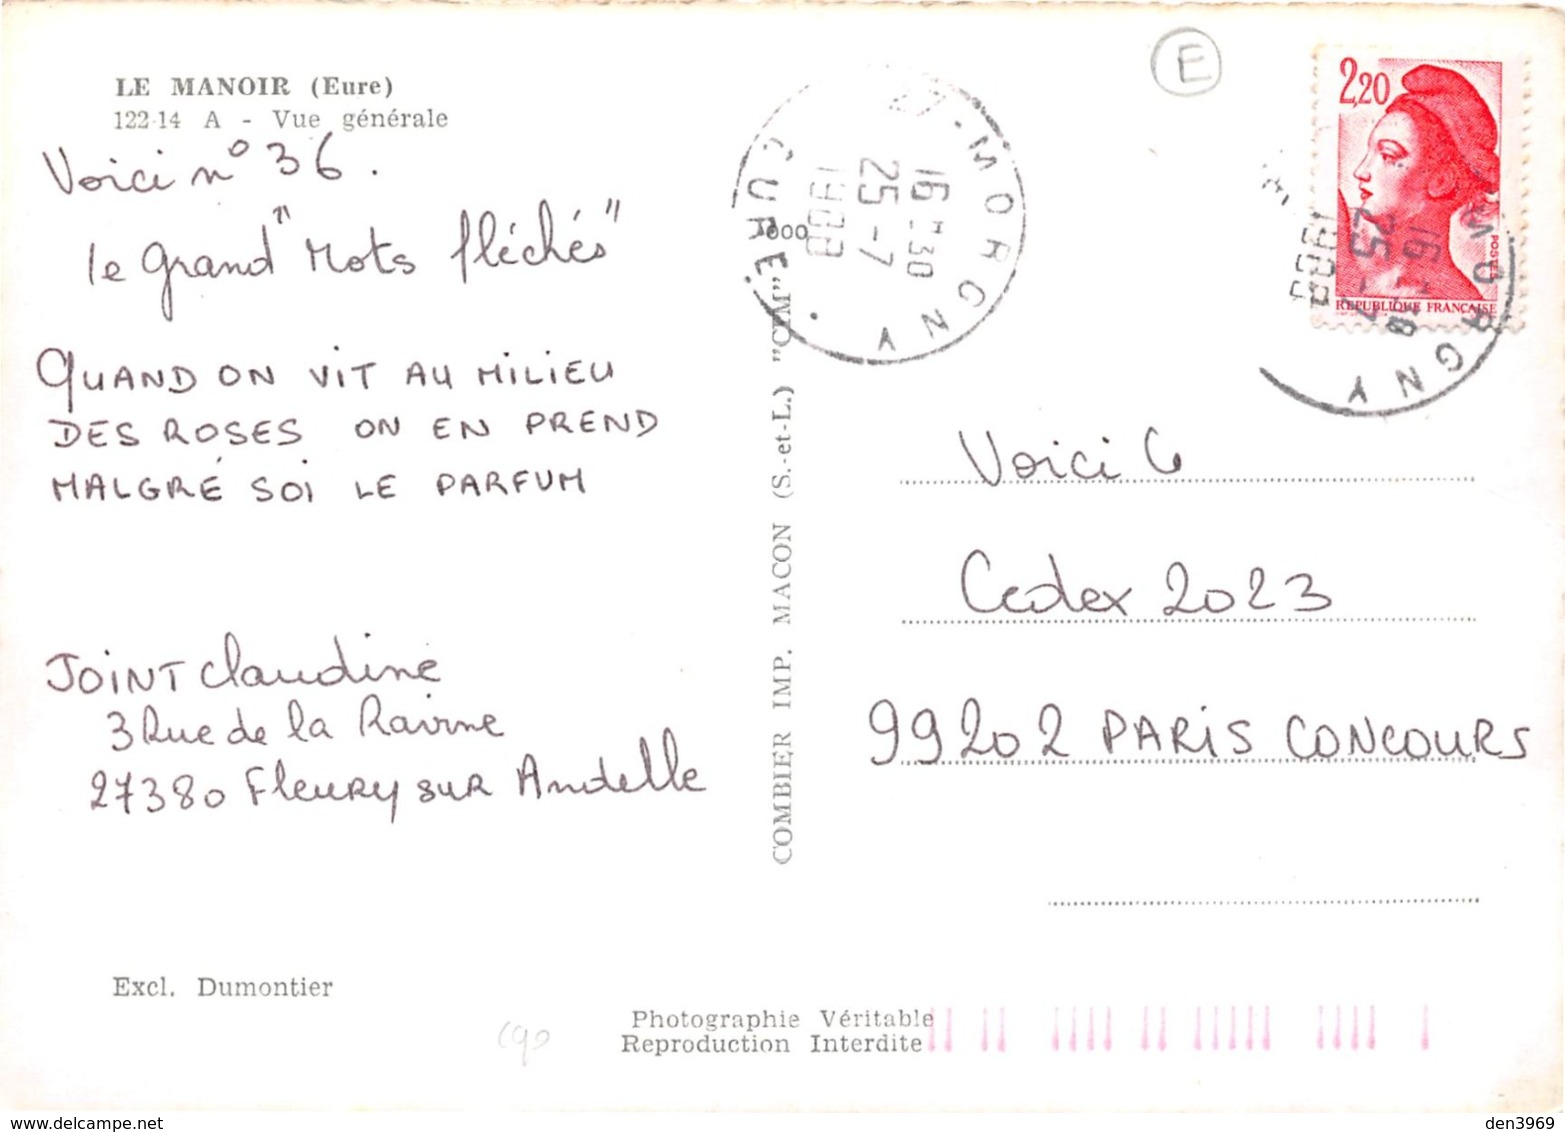 LE MANOIR (Eure)
122-14 A - Vue générale
Voici n° 36.
le grand "Mots fléchés"
QUAND ON VIT AU MILIEU
DES ROSES ON EN PREND
MALGRÉ SOI LE PARFUM
JOINT Claudine
3 Rue de la Ravine
27380 Fleury sur Andelle
Excl. Dumontier
Photographie Véritable
Reproduction Interdite
COMBIER IMP. MACON (S.-et-L.) "CIM"
27 - MORGNY
EURE
16 H 30
25 - 7
1988
E
2,20
POSTES
REPUBLIQUE FRANÇAISE
MORGNY
16
25 - 7
1988
Voici 6
Cedex 2023
99202 PARIS CONCOURS
den3969